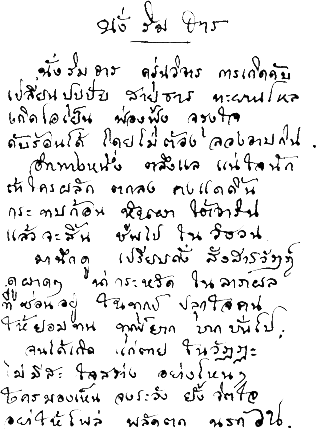 นั่ง ริม ธาร
นั่งริมธาร ครุ่นวิจาร การเกิดดับ
เปลี่ยนปุบปับ สายธาร ทะยานไหล
เกิดไอเย็น ฟองฟุ้ง จรุงใจ
ดับร้อนได้ โดยไม่ต้อง ลองอาบกิน.
อีกทางหนึ่ง ตลึงแล แน่ใจนัก
ถ้าใครผลัก ตกลง คงแดดิ้น
กระทบก้อน หินผา ใต้วาริน
แล้วจะสิ้น ชีพไป ในวังวน.
มานึกดู เปรียบดั่ง สังสารวัฏฏ์
ดูผาดๆ น่ากระหวัด ในลาภผล
ที่ซ่อนอยู่ ในทุกข์ ปลุกใจคน
ให้ยอมทน ทุกข์ยาก บากบั่นไป.
จนได้เกิด แก่ตาย ในวัฏฏะ
ไม่มีสะ ใจสว่าง อย่างไหนๆ
ใครมองเห็น จงระวัง ยั้งจิตใจ
อย่าให้ไพล่ พลัดตก นรกวน.